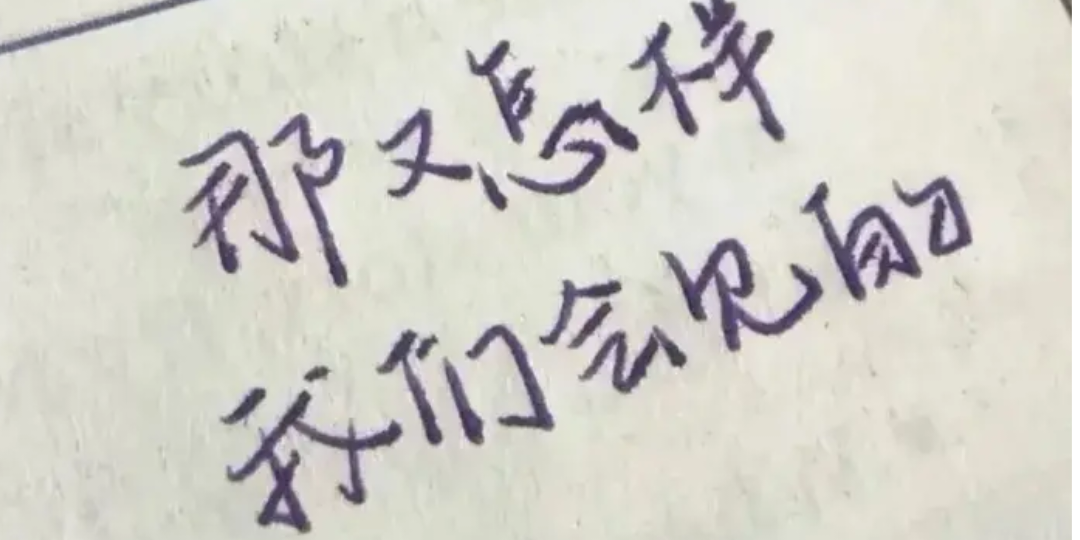 那又怎样
我们会见的